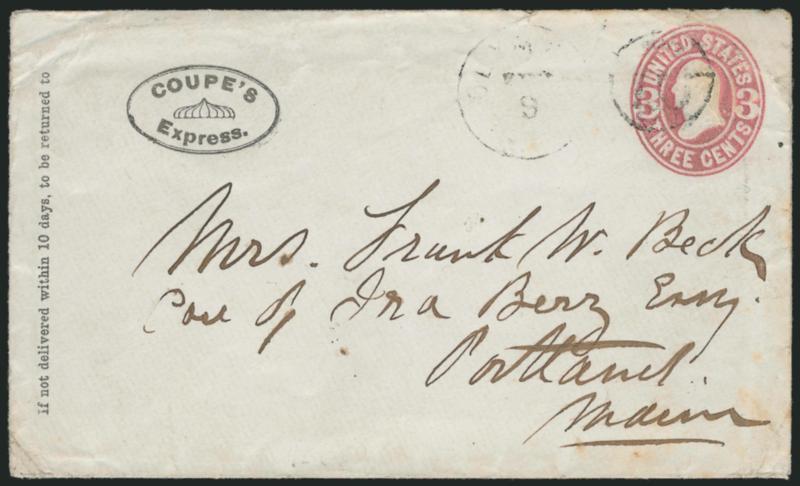 If not delivered within 10 days, to be returned to
COUPE'S
Express.
8
UNITED STATES
3 3
THREE CENTS
Mrs. Frank W. Beck
Care of Ira Berry Esqy.
Portland.
Maine